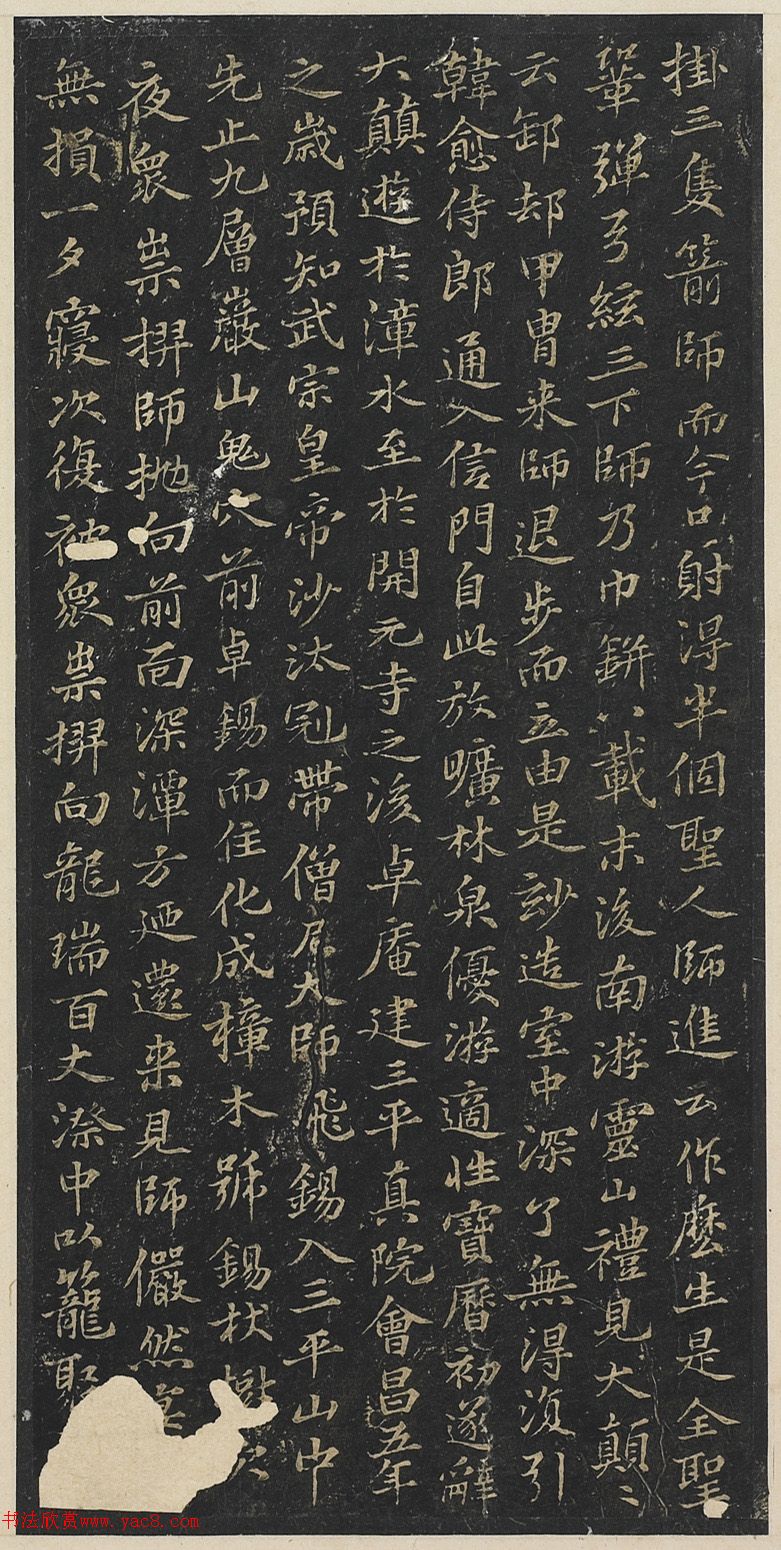 掛三隻箭師而今只射得半個聖人師進云作麼生是全聖
鞏彈弓絃三下師乃巾缾八載末後南游靈山禮見大顛〻
云卸却甲胄来師退步而立由是玅造室中深了無得須引
韓愈侍郎通入信門自此放曠林泉優游適性寶曆初遂辭
大顛遊於漳水至於開元寺之後卓庵建三平真院會昌五年
之歲預知武宗皇帝沙汰冠帶僧尼大師飛錫入三平山中
先止九層巖山鬼穴前卓錫而住化成樟木號錫杖樹次
夜眾祟舁師抛向前面深潭方廻還来見師儼然
無損一夕寢次復被眾祟舁向龍瑞百丈漈中以籠聚
书法欣赏www.yac8.com